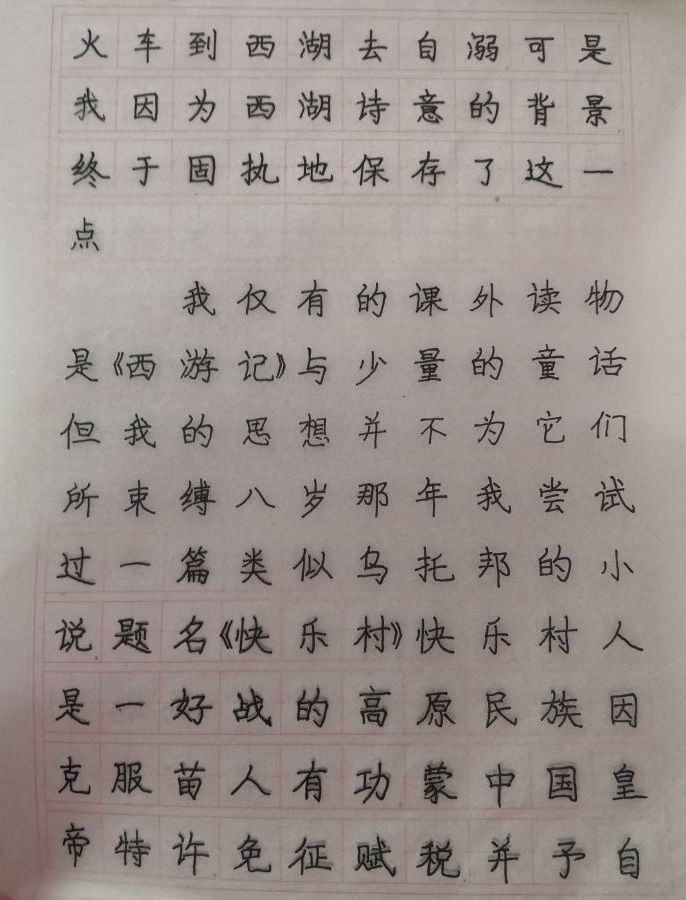 火车到西湖去自溺可是
我因为西湖诗意的背景
终于固执地保存了这一
点
我仅有的课外读物
是《西游记》与少量的童话
但我的思想并不为它们
所束缚八岁那年我尝试
过一篇类似乌托邦的小
说题名《快乐村》快乐村人
是一好战的高原民族因
克服苗人有功蒙中国皇
帝特许免征赋税并予自